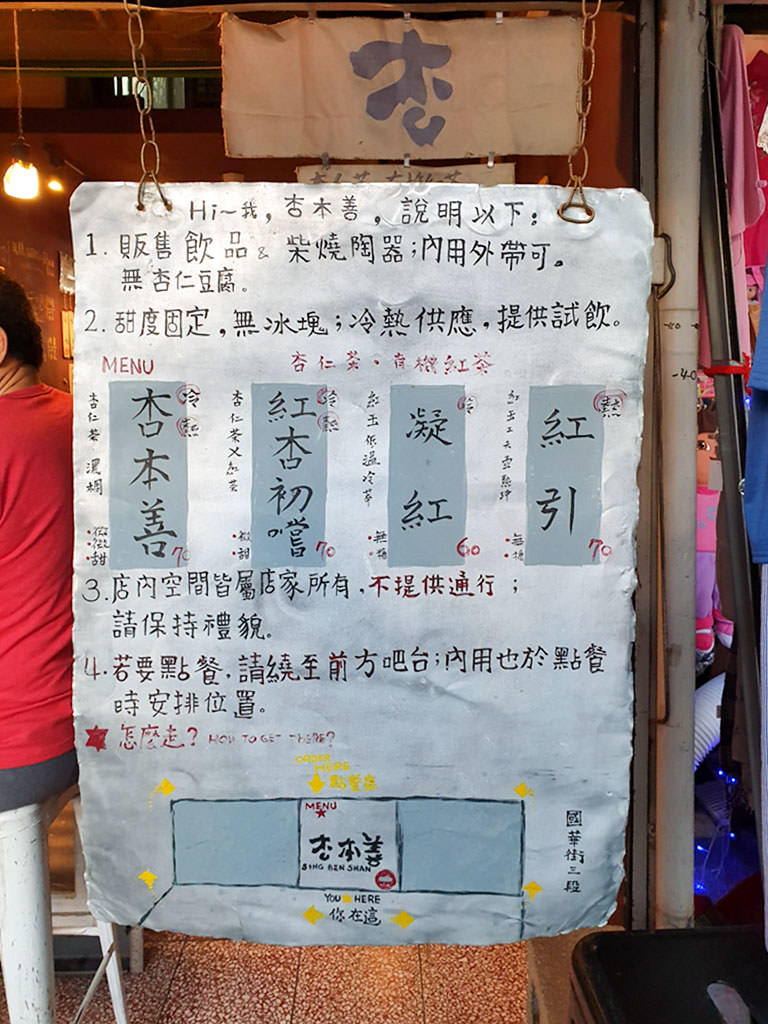 杏
Hi~我，杏本善，說明以下：
1. 販售飲品& 柴燒陶器；內用外帶可。
無杏仁豆腐。
2. 甜度固定，無冰塊；冷熱供應，提供試飲。
MENU
杏仁茶・有機紅茶
杏仁茶 濃稠
・微微甜
杏本善
冷
熱
70
杏仁茶X紅茶
・微甜
紅杏初嚐
冷
熱
70
紅玉低溫冷萃
・無糖
凝紅
冷
60
・無糖
紅引
熱
70
3. 店內空間皆屬店家所有，不提供通行；
請保持禮貌。
4. 若要點餐，請繞至前方吧台；內用也於點餐
時安排位置。
怎麼走？ HOW TO GET THERE?
ORDER
HERE
點餐
MENU
杏本善
SING BEN SHAN
YOU HERE
你在這
國華街三段